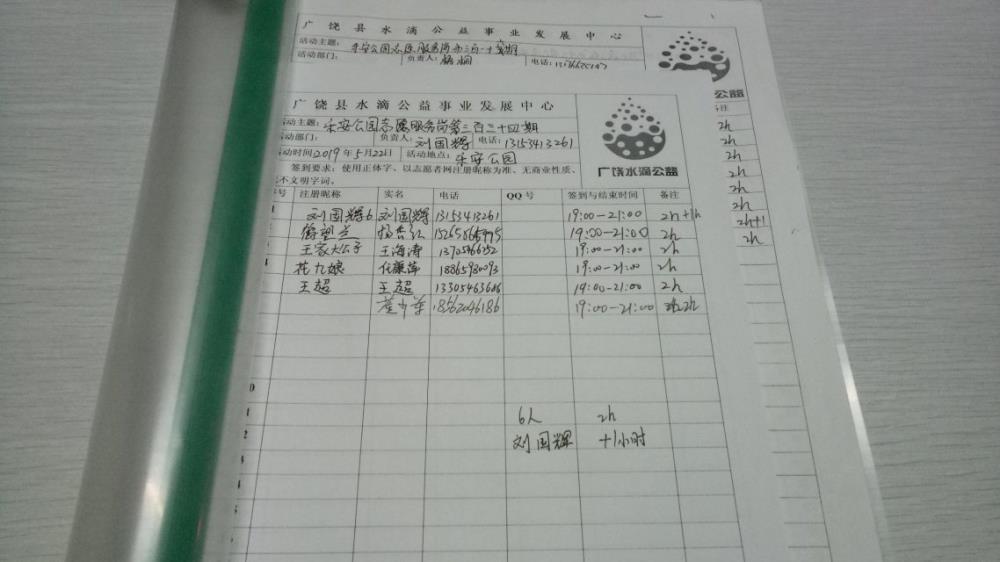 广饶县水滴公益事业发展中心
活动主题：
活动部门： 负责人： 电话：
公益
广饶县水滴公益事业发展中心
活动主题：乐安公园志愿服务岗第三百三十四期
活动部门： 负责人：刘国辉 电话：13153413261
活动时间2019年5月22日 活动地点：乐安公园
签到要求：使用正体字、以志愿者网注册昵称为准、无商业性质、
不文明字词。
广饶水滴公益
号 注册昵称 实名 电话 QQ号 签到与结束时间 备注
刘国辉6 刘国辉 13153413261 19:00-21:00 2h+1h
19:00-21:00 2h
王家大公子 王海涛 19:00-21:00 2h
花九娘 18865980093 19:00-21:00 2h
王超 王超 19:00-21:00 2h
18562046186 19:00-21:00 2h
6人 2h
刘国辉 +1小时
备注
2h
2h
2h
2h
2h
2h+1
2h